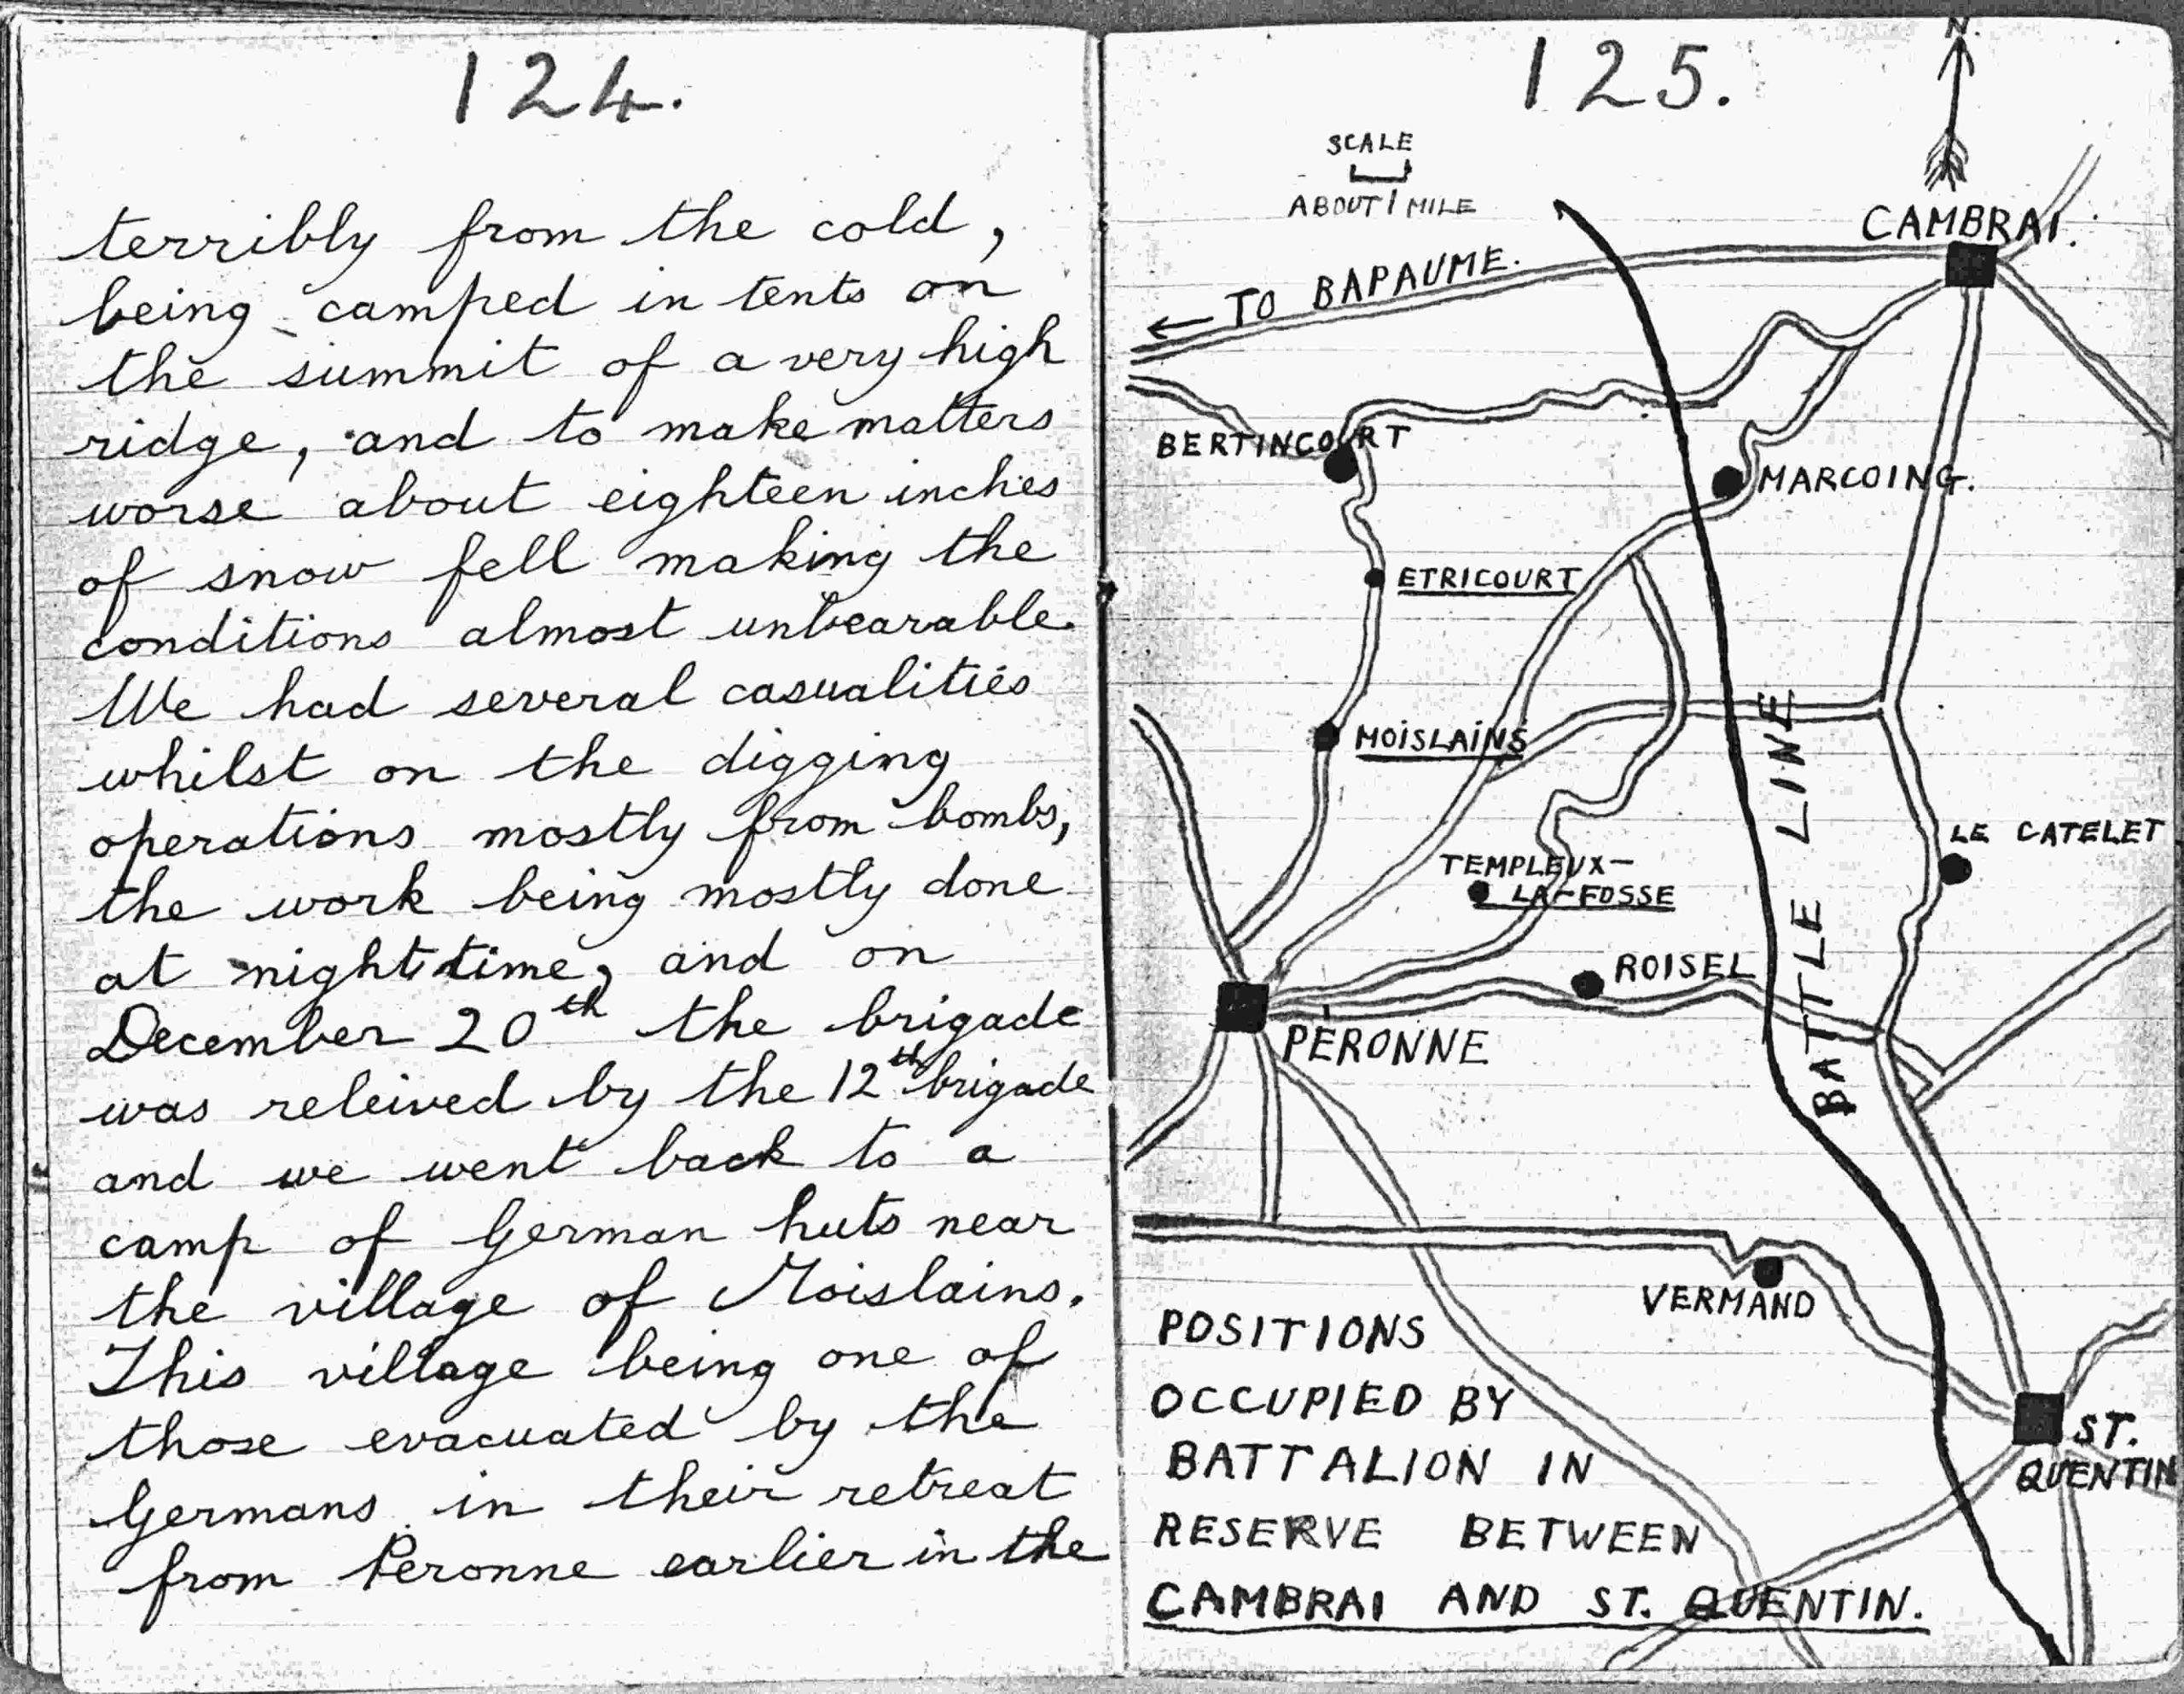 124.
terribly from the cold,
being camped in tents on
the summit of a very high
ridge, and to make matters
worse about eighteen inches
of snow fell making the
conditions almost unbearable.
We had several casualities
whilst on the digging
operations mostly from bombs,
the work being mostly done
at night time, and on
December 20th the brigade
was releived by the 12th brigade
and we went back to a
camp of German huts near
the village of Moislains.
This village being one of
those evacuated by the
Germans in their retreat
from Peronne earlier in the
125.
N.
SCALE
ABOUT 1 MILE
CAMBRAI.
← TO BAPAUME.
BERTINCOURT
MARCOING.
ETRICOURT
MOISLAINS
BATTLE LINE
LE CATELET
TEMPLEUX-
LA-FOSSE
ROISEL
PÉRONNE
VERMAND
ST.
QUENTIN
POSITIONS
OCCUPIED BY
BATTALION IN
RESERVE BETWEEN
CAMBRAI AND ST. QUENTIN.